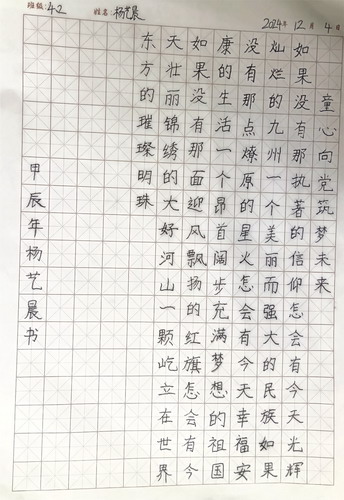 班级:42 姓名:杨艺晨 2024年12月4日
童心向党筑梦未来
如果没有那一执著的信仰怎会有今天光辉
灿烂的九州一个美丽而强大的民族如果
没有那点燎原的星火怎会有今天幸福安
康的生活一个昂首阔步充满梦想的祖国
如果没有那面迎风飘扬的红旗怎会有今
天壮丽锦绣的大好河山一颗屹立在世界
东方的璀璨明珠
甲辰年杨艺晨书